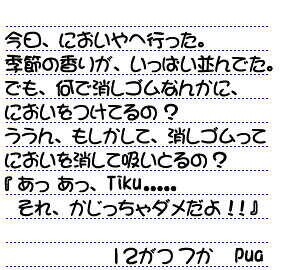 今日、においやへ行った。
季節の香りが、いっぱい並んでた。
でも、何で消しゴムなんかに、
においをつけてるの？
ううん、もしかして、消しゴムって
においを消して吸いとるの？
『あっ あっ、Tiku.....
それ、かじっちゃダメだよ！！』
12がつ 7か　Pua